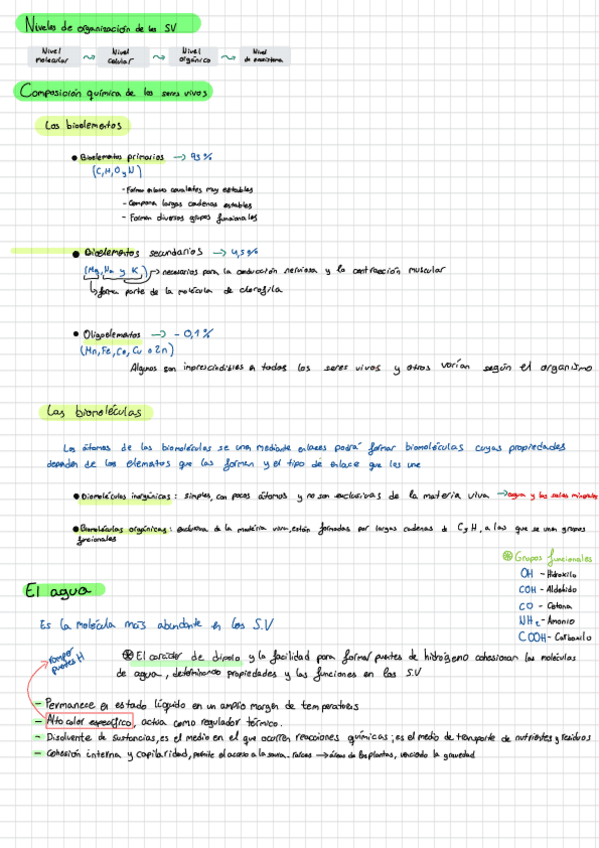 Niveles de organización de los SV
Nivel molecular → Nivel celular → Nivel orgánico → Nivel de ecosistema
Composición química de los seres vivos
Los bioelementos
• Bioelementos primarios → 95%
(C, H, O y N)
- Forman enlaces covalentes muy estables
- Compone largas cadenas estables
- Forman diversos grupos funcionales
• Bioelementos secundarios → 4,5%
(Mg, Na y K) → necesarios para la conducción nerviosa y la contracción muscular
↳ forma parte de la molécula de clorofila
• Oligoelementos → - 0,1%
(Mn, Fe, Co, Cu o Zn)
Algunos son imprescindibles en todos los seres vivos y otros varían según el organismo
Las biomoléculas
Los átomos de las biomoléculas se unen mediante enlaces podrá formar biomoléculas cuyas propiedades
dependen de los elementos que las forman y el tipo de enlace que les une
• Biomoléculas inorgánicas: simples, con pocos átomos y no son exclusivas de la materia viva → agua y las sales minerales
• Biomoléculas orgánicas: exclusiva de la materia viva, están formadas por largas cadenas de C y H, a las que se unen grupos
funcionales
⊛ Grupos funcionales
OH - Hidroxilo
COH - Aldehido
CO - Cetona
NH₂ - Amonio
COOH - Carboxilo
El agua
Es la molécula más abundante en los S.V
romper puentes H
⊛ El carácter de dipolo y la facilidad para formar puentes de hidrógeno cohesionar las moléculas
de agua, determinando propiedades y las funciones en los S.V
- Permanece en estado líquido en un amplio margen de temperatura
- Alto calor específico, actúa como regulador térmico.
- Disolvente de sustancias, es el medio en el que ocurren reacciones químicas; es el medio de transporte de nutrientes y residuos
- Cohesión interna y capilaridad, permite el acceso a la savia. raíces → de las plantas, venciendo la gravedad